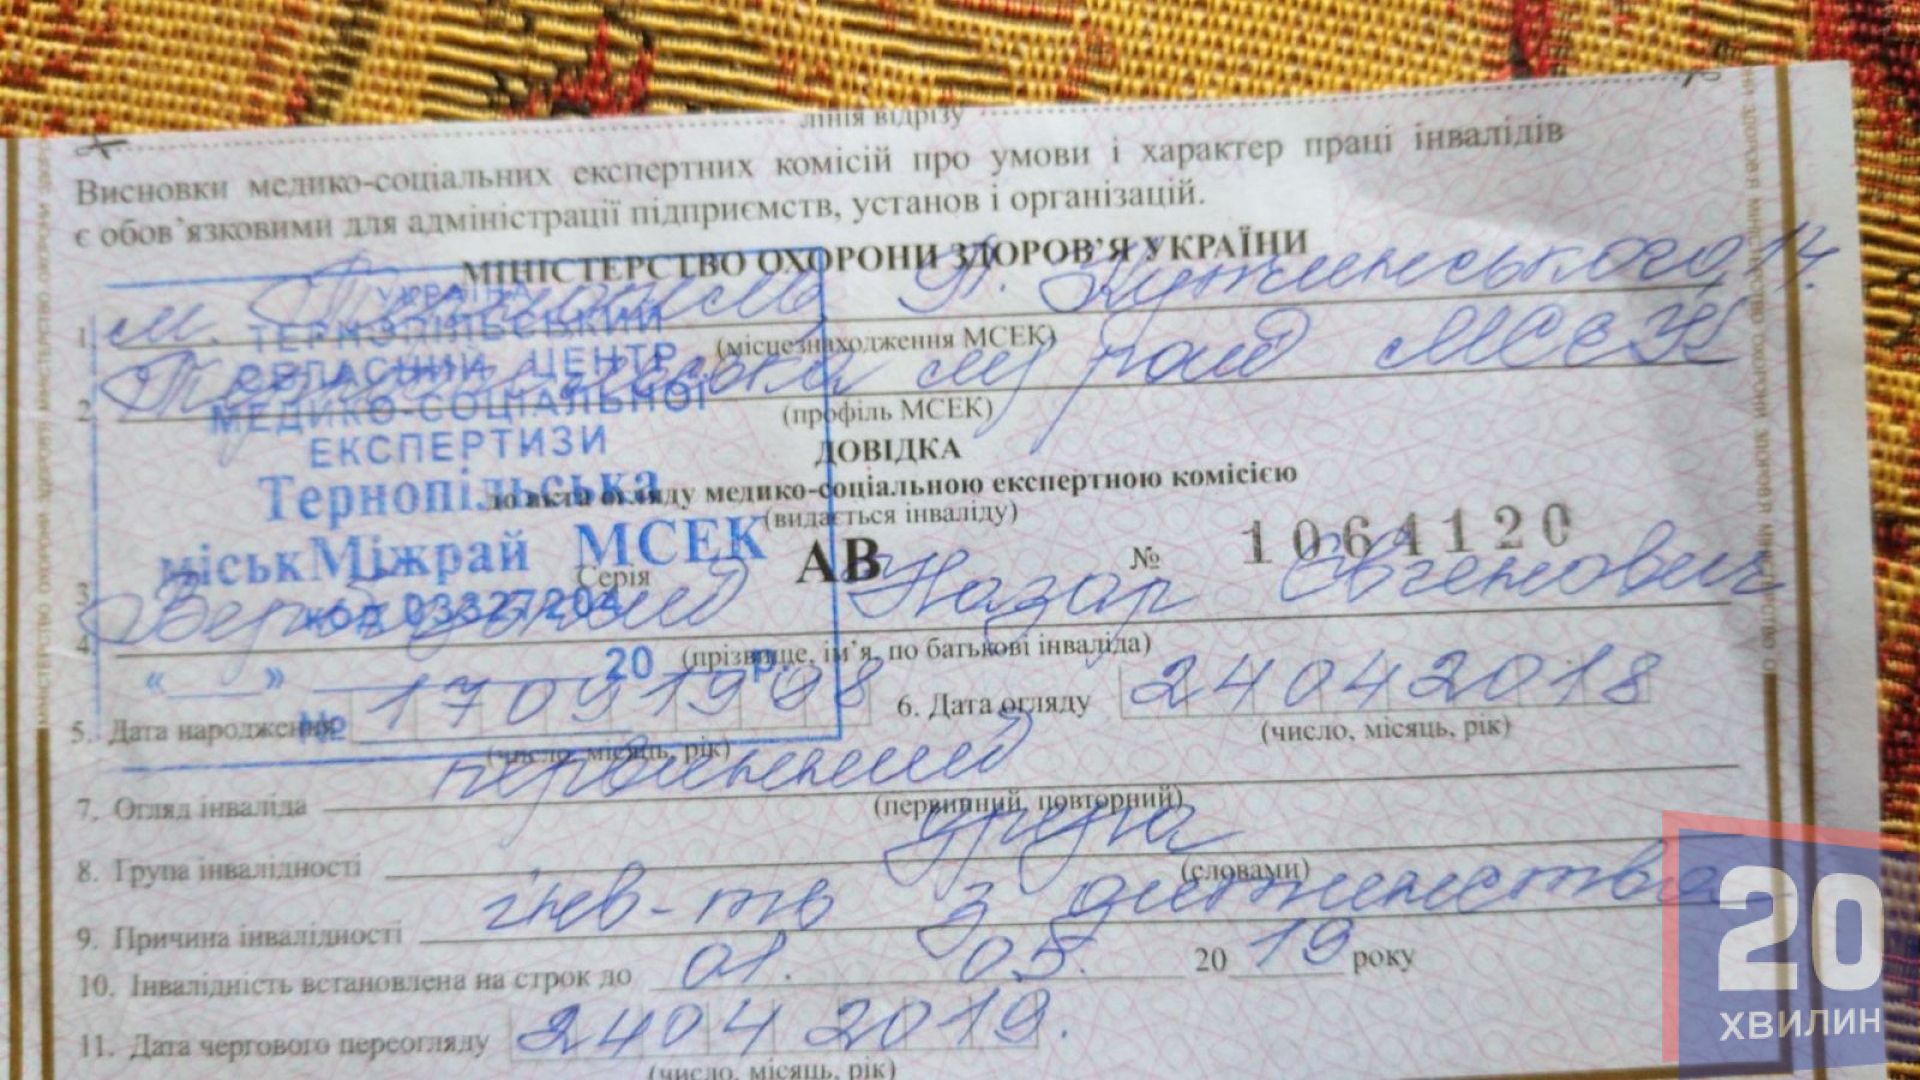 лінія відрізу
Висновки медико-соціальних експертних комісій про умови і характер праці інвалідів
є обов'язковими для адміністрації підприємств, установ і організацій.
МІНІСТЕРСТВО ОХОРОНИ ЗДОРОВ'Я УКРАЇНИ
УКРАЇНА
ТЕРНОПІЛЬСЬКИЙ
ОБЛАСНИЙ ЦЕНТР
МЕДИКО-СОЦІАЛЬНОЇ
ЕКСПЕРТИЗИ
Тернопільська
міськМіжрай МСЕК
код 03327204
« » 20 р.
№
1. м. Тернопіль,
(місцезнаходження МСЕК)
2. МСЕК
(профіль МСЕК)
ДОВІДКА
до акта огляду медико-соціальною експертною комісією
(видається інваліду)
3. Серія АВ № 1061120
4. Назар Євгенович
(прізвище, ім'я, по батькові інваліда)
5. Дата народження 17091998 6. Дата огляду 24042018
(число, місяць, рік) (число, місяць, рік)
7. Огляд інваліда первинний
(первинний, повторний)
8. Група інвалідності група
(словами)
9. Причина інвалідності інв-тв з дитинства
10. Інвалідність встановлена на строк до 01. 05. 2019 року
11. Дата чергового переогляду 24042019.
(число, місяць, рік)
20
ХВИЛИН